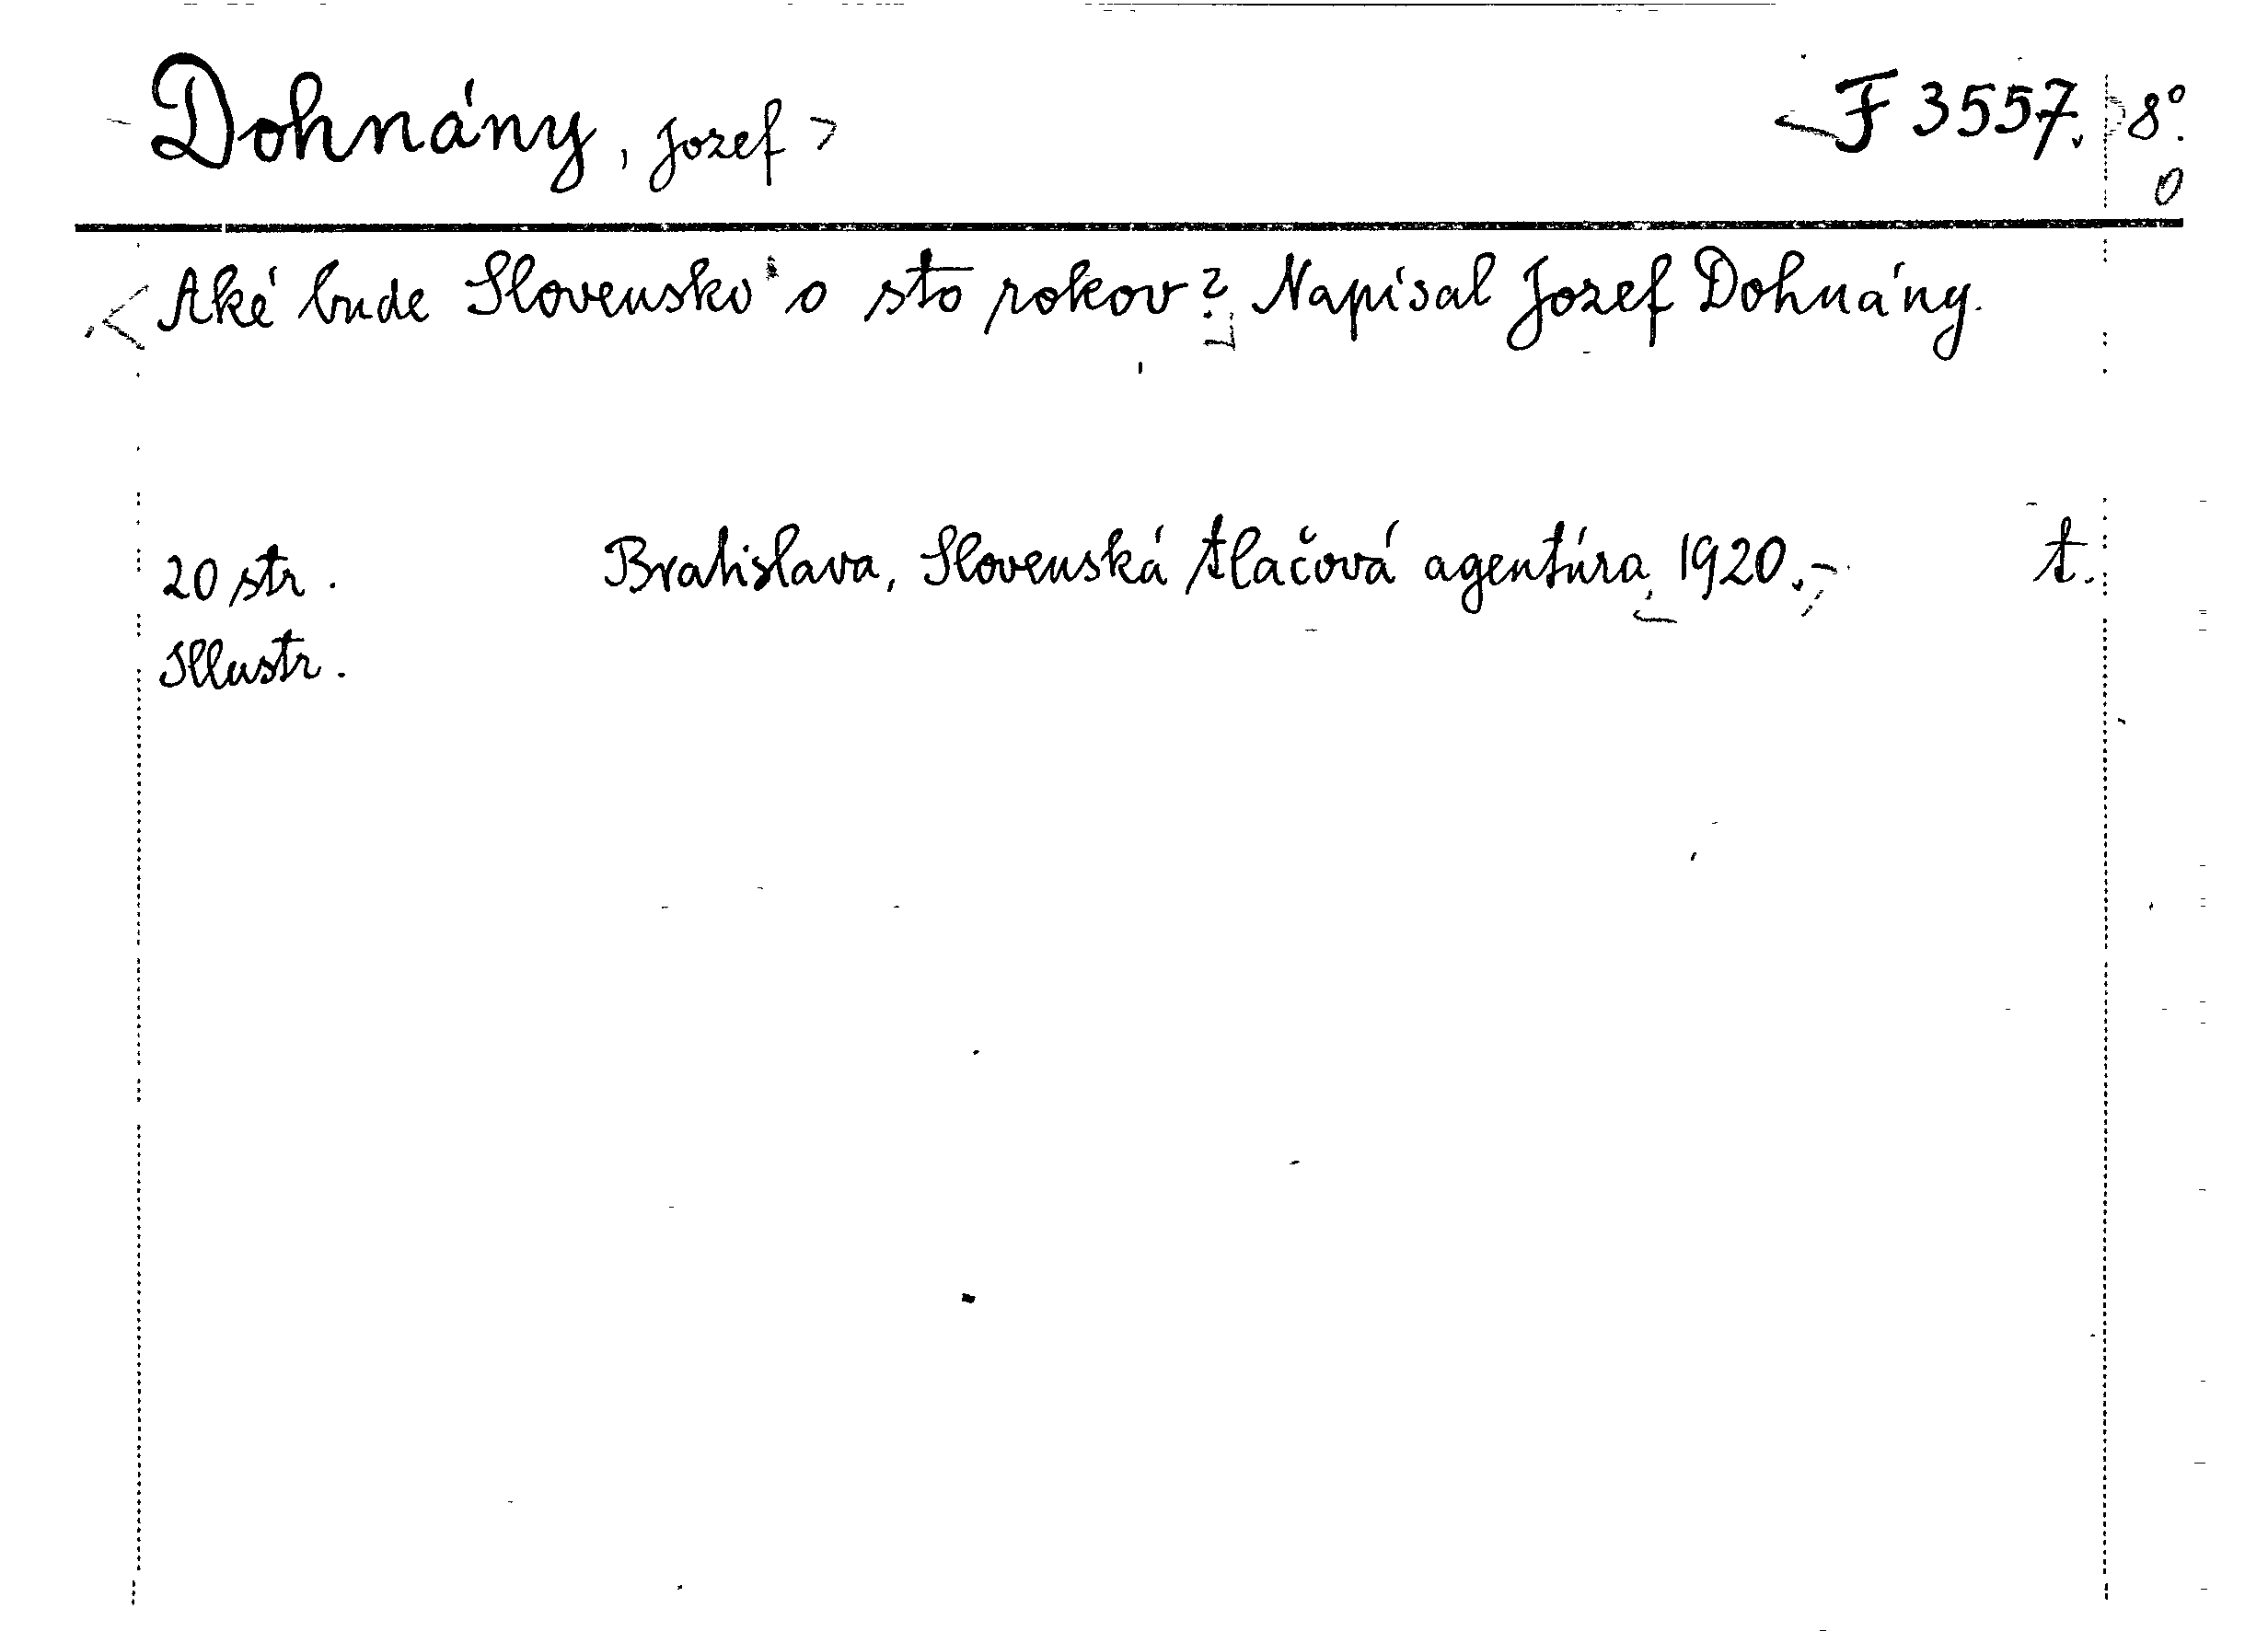 Dohnány, Jozef F 3557. 8°.
0
Aké bude Slovensko o sto rokov? Napísal Jozef Dohnány.
20 str. Bratislava, Slovenská tlačová agentúra, 1920. t.
Illustr.